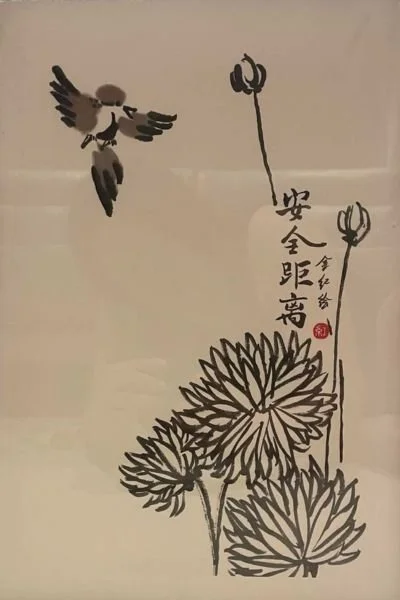 安全距离
金红